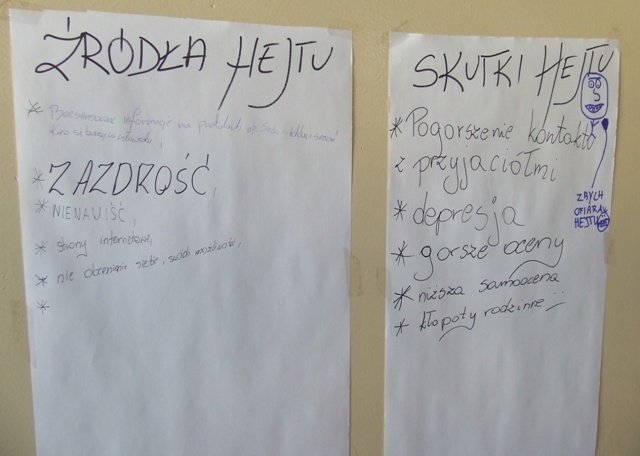 ŹRÓDŁA HEJTU
* informacje na portalach
* ZAZDROŚĆ,
* NIENAWIŚĆ,
* strony internetowe,
* nie docenianie siebie, swoich możliwości,
*
SKUTKI HEJTU
* Pogorszenie kontaktó
z przyjaciółmi
* depresja
* gorsze oceny
* niższa samoocena
* kłopoty rodzinne
ZBYCH
OFIARA
HEJTU